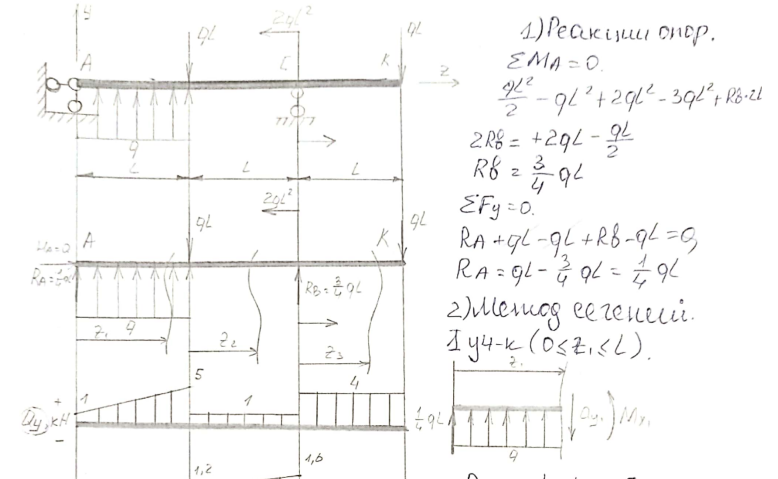 y
2qL²
qL
qL
A
C
K
z
q
L
L
L
2qL²
qL
qL
A
K
R_B = 3/4 qL
q
z₁
z₂
z₃
5
1
1
4
+
Qy, кН
−
1,2
1,6
1) Реакции опор.
ΣM_A = 0.
qL²/2 − qL² + 2qL² − 3qL² + R_B·2L
2R_B = +2qL − qL/2
R_B = 3/4 qL
ΣFy = 0.
R_A + qL − qL + R_B − qL = 0,
R_A = qL − 3/4 qL = 1/4 qL
2) Метод сечений.
I уч-к (0 ≤ z₁ ≤ L).
z₁
1/4 qL
Qy₁
My₁
q